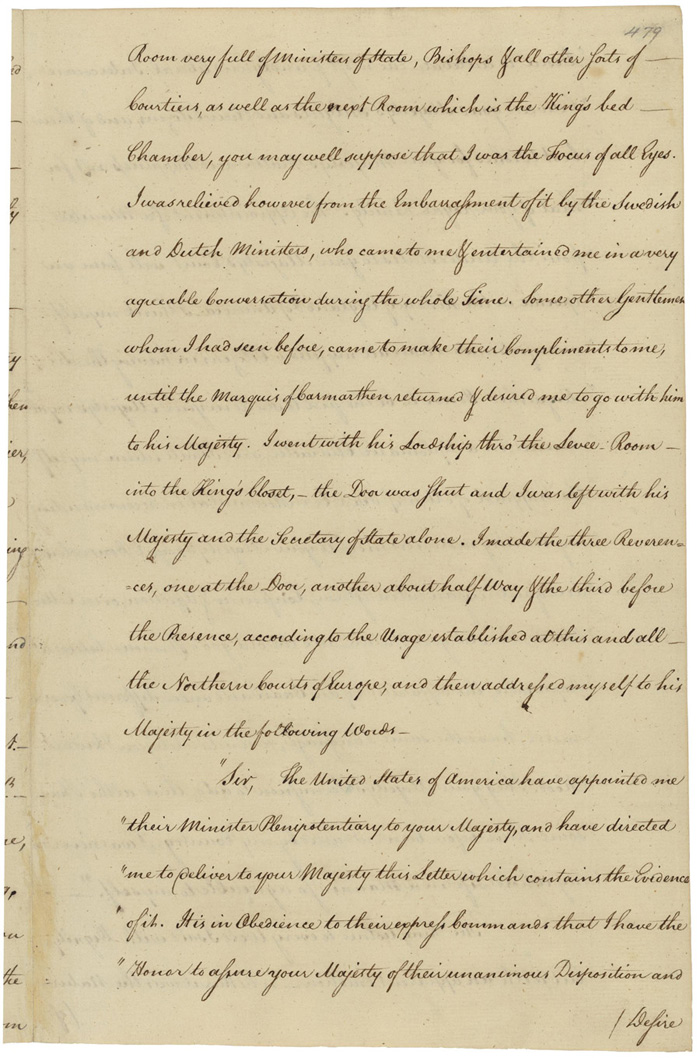 479
Room very full of Ministers of State, Bishops & all other sorts of —
Courtiers, as well as the next Room which is the King's bed —
Chamber, you may well suppose that I was the Focus of all Eyes.
I was relieved however from the Embarrassment of it by the Swedish
and Dutch Ministers, who came to me & entertained me in a very
agreeable Conversation during the whole Time. Some other Gentlemen
whom I had seen before, came to make their Compliments to me,
until the Marquis of Carmarthen returned & desired me to go with him
to his Majesty. I went with his Lordship thro' the Levee-Room —
into the King's Closet, — the Door was shut and I was left with his
Majesty and the Secretary of State alone. I made the three Reveren=
=ces, one at the Door, another about half Way & the third before
the Presence, according to the Usage established at this and all —
the Northern Courts of Europe, and then addressed myself to his
Majesty in the following Words —
"Sir, The United States of America have appointed me
"their Minister Plenipotentiary to your Majesty, and have directed
"me to deliver to your Majesty this Letter which contains the Evidence
"of it. It is in Obedience to their express Commands that I have the
"Honor to assure your Majesty of their unanimous Disposition and
/ Desire